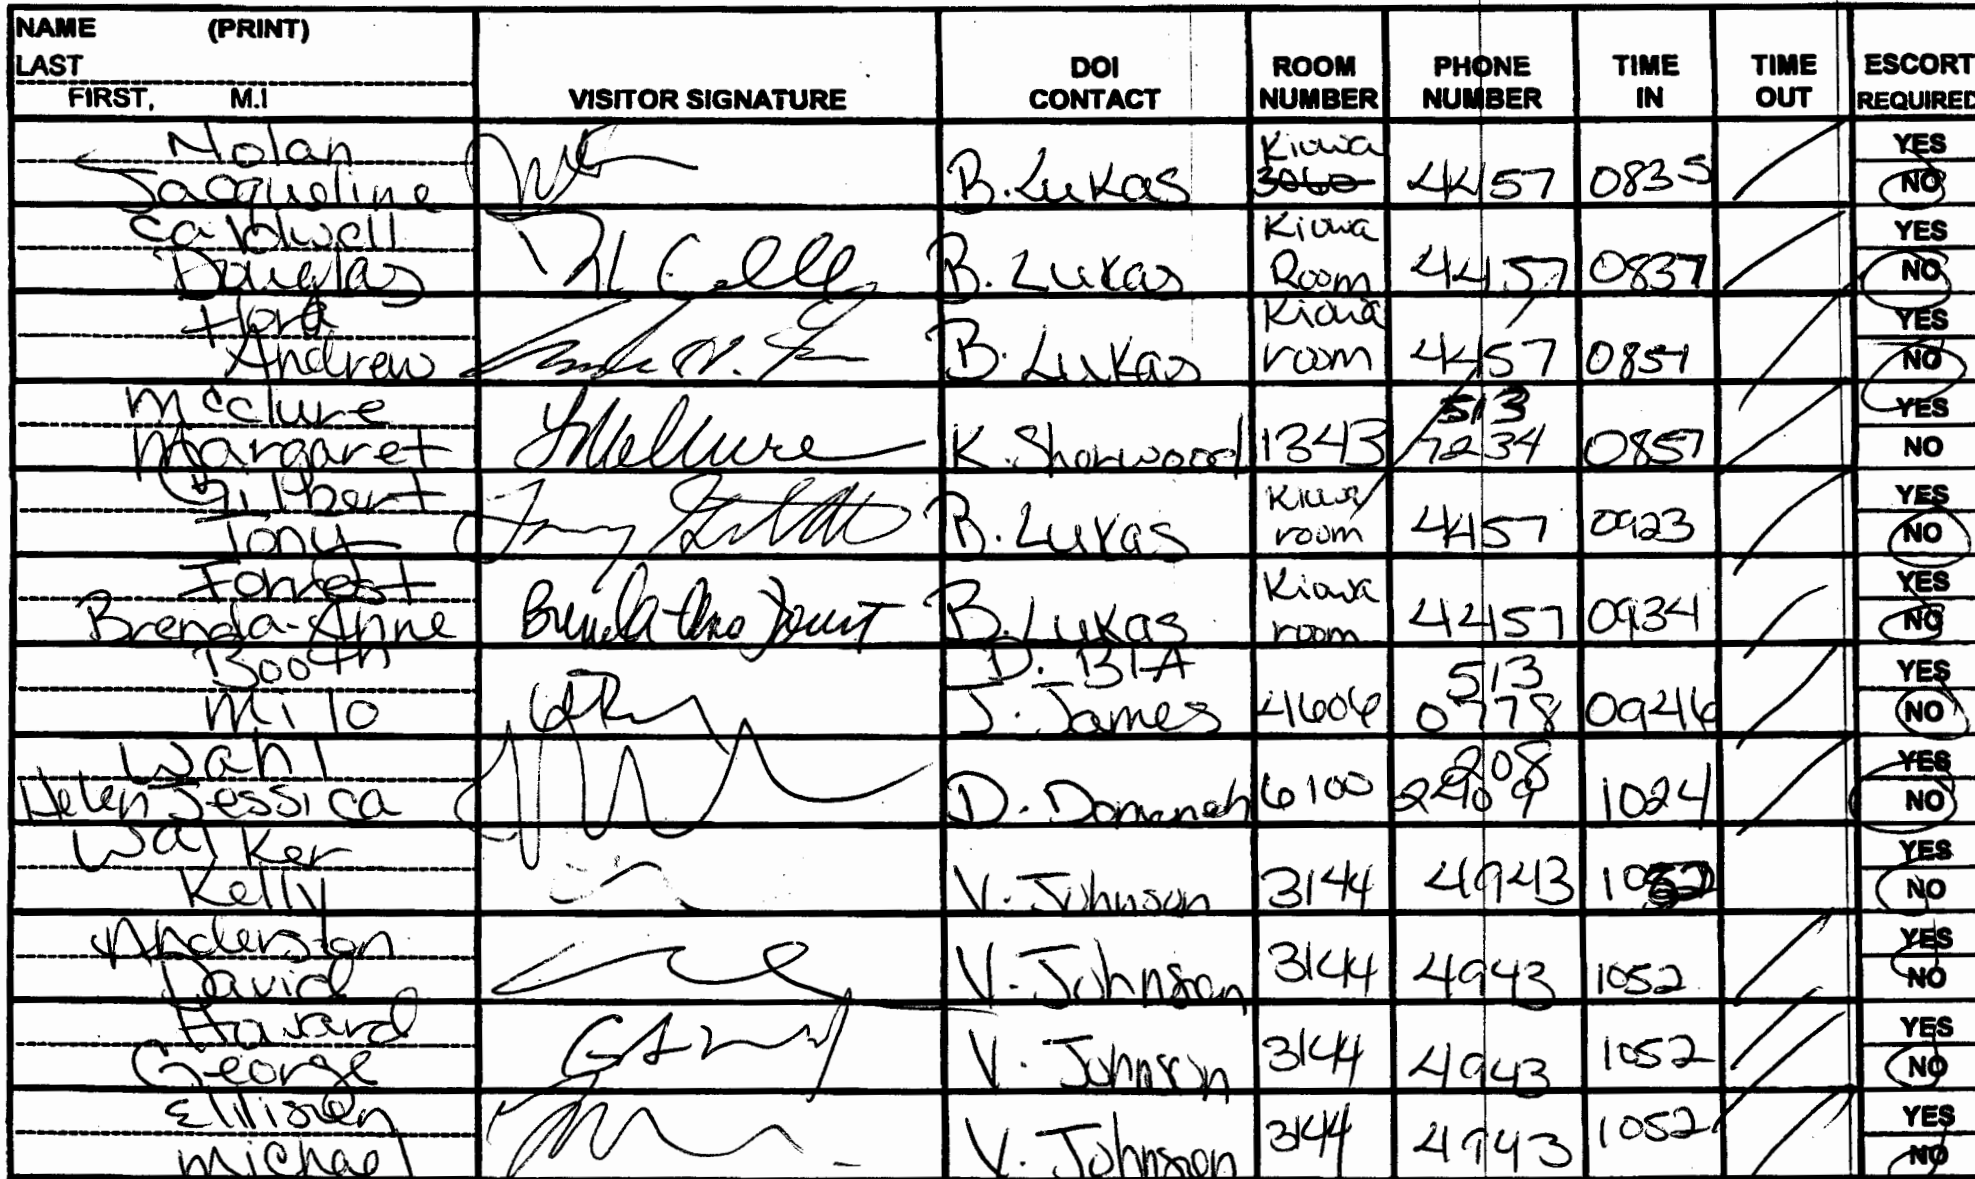 NAME (PRINT)
LAST
FIRST, M.I
VISITOR SIGNATURE
DOI CONTACT
ROOM NUMBER
PHONE NUMBER
TIME IN
TIME OUT
ESCORT REQUIRED
Nolan
Jacqueline
B. Lukas
Kiowa
3060
44157
0835
YES
NO
Caldwell
Douglas
B. Lukas
Kiowa
Room
44157
0837
YES
NO
Andrew
B. Lukas
Kiowa
room
44157
0851
YES
NO
McClure
Margaret
K. Sherwood
1343
513
7234
0857
YES
NO
Gilbert
Tony
B. Lukas
Kiowa
room
44157
0923
YES
NO
Forrest
Brenda-Anne
Brenda-Ann
B. Lukas
Kiowa
room
44157
0934
YES
NO
Booth
Milo
D. BIA
J. James
4606
513
0778
0946
YES
NO
Wahl
Helen Jessica
D. Domenech
6100
208
1024
YES
NO
Walker
Kelly
V. Johnson
3144
4943
YES
NO
Anderston
David
V. Johnson
3144
4943
1052
YES
NO
George
V. Johnson
3144
4943
1052
YES
NO
Ellison
Michael
V. Johnson
3144
4943
1052
YES
NO